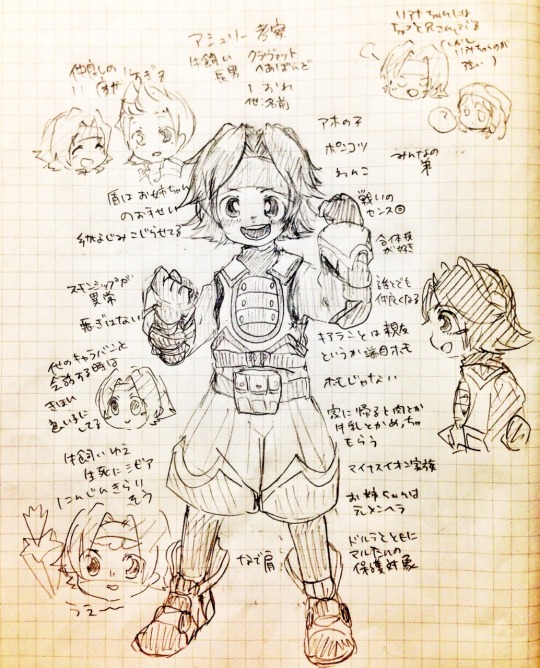 アシュリー 考察
牛飼い
長男
クラヴァット
へあばんど
1 おれ
他:名前
リアナちゃんには
強い)
仲良しの
アホの子
ポンコツ
わんこ
みんなの
弟
眉はお姉ちゃん
のおすせい
幼なじみこじらせてる
戦いの
センス◎
合体技
が好き
誰とでも
仲良くなる
スキンシップが
異常
悪ぎはない
キアランとは親友
というか端目ホモ
ホモじゃない
他のキャラバンと
会話する時は
きほん
色いろにしてる
家に帰ると肉とか
牛乳とかめっちゃ
もらう
牛飼いゆえ
生死にシビア
にんじんきらい
そう
マイナスイオン家族
お姉ちゃんは
元メンヘラ
なで肩
ドルテとともに
マルたんの
保護対象
うえ〜
?